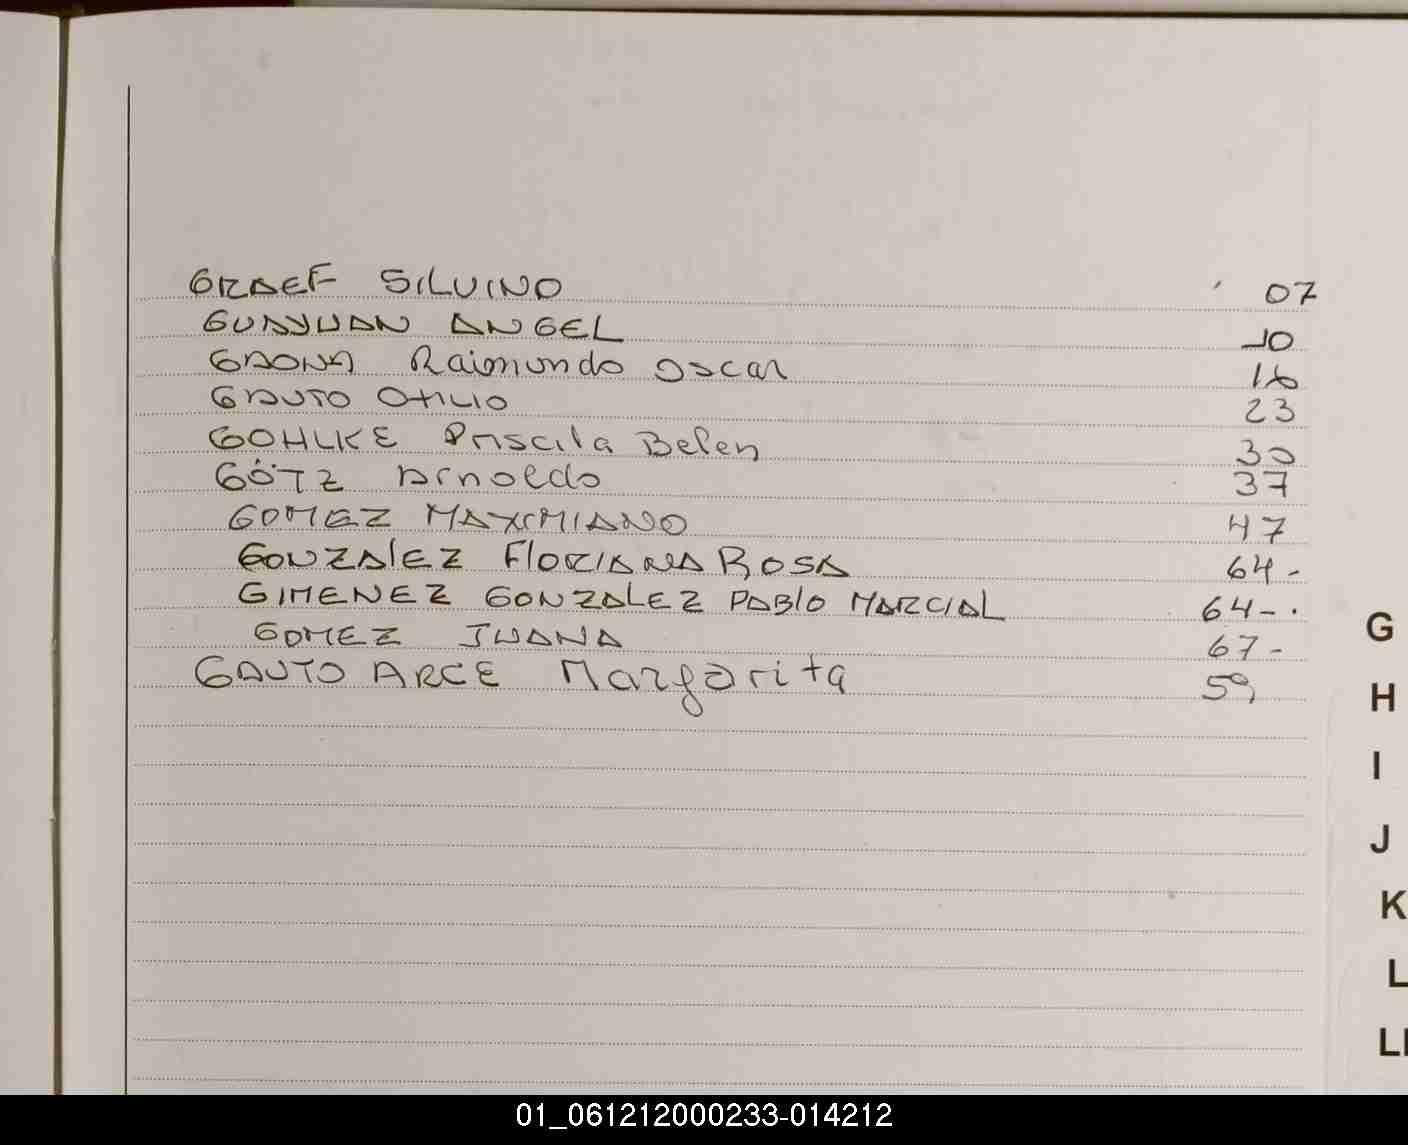 GRAEF SILVINO 07
GUAYUAN ANGEL 10
GAONA Raimundo Oscar 16
GAUTO Otilio 23
GOHLKE Priscila Belen 30
GÖTZ Arnoldo 37
GOMEZ MAXIMIANO 47
GONZALEZ FLORIANA ROSA 64-
GIMENEZ GONZALEZ PABLO MARCIAL 64-.
GOMEZ JUANA 67-
GAUTO ARCE Margarita 59
G
H
I
J
K
L
LL
01_061212000233-014212